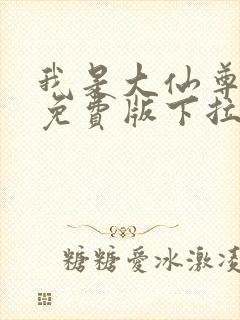 我是大仙尊
免費版下拉
糖糖愛冰激凌